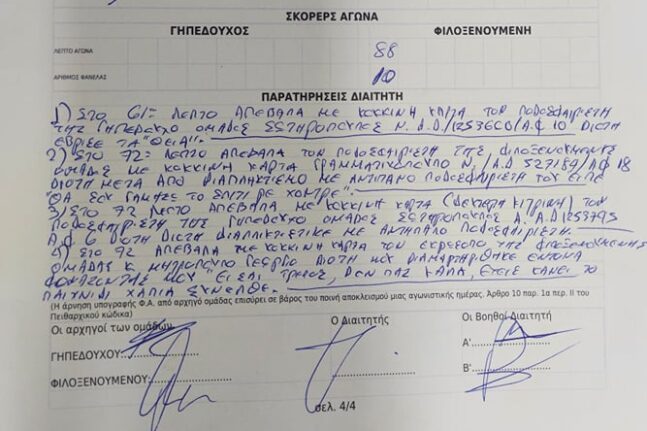 ΣΚΟΡΕΡΣ ΑΓΩΝΑ
ΓΗΠΕΔΟΥΧΟΣ ΦΙΛΟΞΕΝΟΥΜΕΝΗ
ΛΕΠΤΟ ΑΓΩΝΑ 88
ΑΡΙΘΜΟΣ ΦΑΝΕΛΑΣ 10
ΠΑΡΑΤΗΡΗΣΕΙΣ ΔΙΑΙΤΗΤΗ
1) ΣΤΟ 61= ΛΕΠΤΟ ΑΠΕΒΑΛΑ ΜΕ ΚΟΚΚΙΝΗ ΚΑΡΤΑ ΤΟΝ ΠΟΔΟΣΦΑΙΡΙΣΤΗ
ΤΗΣ ΓΗΠΕΔΟΥΧΟ ΟΜΑΔΑΣ ΣΩΤΗΡΟΠΟΥΛΟΣ Ν. Α.Δ/1253608/Α.Φ 10 ΔΙΟΤΗ
ΕΒΡΙΣΕ ΤΑ "ΘΕΙΑ".
2) ΣΤΟ 72= ΛΕΠΤΟ ΑΠΕΒΑΛΑ ΤΟΝ ΠΟΔΟΣΦΑΙΡΙΣΤΗ ΤΗΣ ΦΙΛΟΞΕΝΟΥΜΕΝΗΣ
ΟΜΑΔΑΣ ΜΕ ΚΟΚΚΙΝΗ ΚΑΡΤΑ ΓΡΑΜΜΑΤΙΚΟΠΟΥΛΟ Ν./Α.Δ 527189/Α.Φ 18
ΔΙΟΤΗ ΜΕΤΑ ΑΠΟ ΔΙΑΠΛΗΚΤΙΣΜΟ ΜΕ ΑΝΤΙΠΑΛΟ ΠΟΔΟΣΦΑΙΡΙΣΤΗ ΤΟΥ ΕΙΠΕ
"ΘΑ ΣΟΥ ΓΑΜΗΣΩ ΤΟ ΣΠΙΤΙ ΡΕ ΧΟΝΤΡΕ".
3) ΣΤΟ 72 ΛΕΠΤΟ ΑΠΕΒΑΛΑ ΜΕ ΚΟΚΚΙΝΗ ΚΑΡΤΑ (ΔΕΥΤΕΡΗ ΚΙΤΡΙΝΗ) ΤΟΝ
ΠΟΔΟΣΦΑΙΡΙΣΤΗ ΤΗΣ ΓΗΠΕΔΟΥΧΟ ΟΜΑΔΑΣ ΣΩΤΗΡΟΠΟΥΛΟΣ Α. Α.Δ1253795
Α.Φ 6 ΔΙΟΤΗ ΔΙΟΤΗ ΔΙΑΠΛΗΚΤΙΣΤΙΚΕ ΜΕ ΑΝΤΙΠΑΛΟ ΠΟΔΟΣΦΑΙΡΙΣΤΗ.
4) ΣΤΟ 72 ΑΠΕΒΑΛΑ ΜΕ ΚΟΚΚΙΝΗ ΚΑΡΤΑ ΤΟΝ ΤΗΣ ΦΙΛΟΞΕΝΟΥΜΕΝΗΣ
ΟΜΑΔΑΣ Κ. ΜΗΤΡΟΠΟΥΛΟ ΓΕΩΡΓΙΟ ΔΙΟΤΗ ΜΟΥ ΔΙΑΜΑΡΤΗΡΗΘΗΚΕ ΕΝΤΟΝΑ
ΦΩΝΑΖΟΝΤΑΣ ΜΟΥ "ΕΙΣΑΙ ΤΡΕΛΟΣ, ΔΕΝ ΠΑΣ ΚΑΛΑ, ΕΧΕΙΣ ΚΑΝΕΙ ΤΟ
ΠΑΙΧΝΙΔΙ ΧΑΛΙΑ ΣΥΝΕΛΘΕ.
(Η άρνηση υπογραφής Φ.Α. από αρχηγό ομάδας επισύρει σε βάρος του ποινή αποκλεισμού μιας αγωνιστικής ημέρας. Άρθρο 10 παρ. 1α περ. ΙΙ του
Πειθαρχικού κώδικα)
Οι αρχηγοί των ομάδων Ο Διαιτητής Οι Βοηθοί Διαιτητή
ΓΗΠΕΔΟΥΧΟΥ: Α'
ΦΙΛΟΞΕΝΟΥΜΕΝΟΥ: Β'
σελ. 4/4